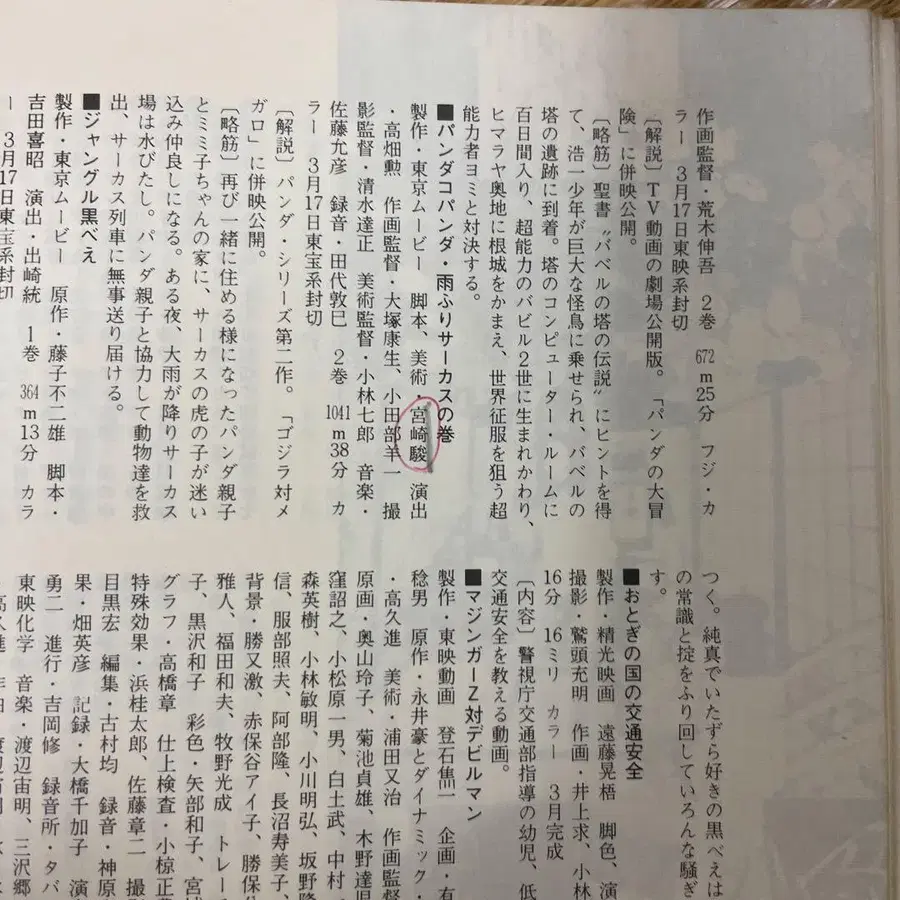 作画監督・荒木伸吾 2巻 672m25分 フジ・カ
ラー 3月17日東映系封切
〔解説〕TV動画の劇場公開版。「パンダの大冒
険」に併映公開。
〔略筋〕聖書〝バベルの塔の伝説〟にヒントを得
て、浩一少年が巨大な怪鳥に乗せられ、バベルの
塔の遺跡に到着。塔のコンピューター・ルームに
百日間入り、超能力のバビル2世に生まれかわり、
ヒマラヤ奥地に根城をかまえ、世界征服を狙う超
能力者ヨミと対決する。
■パンダコパンダ・雨ふりサーカスの巻
製作・東京ムービー 脚本、美術・宮崎駿 演出
・高畑勲 作画監督・大塚康生、小田部羊一 撮
影監督・清水達正 美術監督・小林七郎 音楽・
佐藤允彦 録音・田代敦巳 2巻 1041m38分 カ
ラー 3月17日東宝系封切
〔解説〕パンダ・シリーズ第二作。「ゴジラ対メ
ガロ」に併映公開。
〔略筋〕再び一緒に住める様になったパンダ親子
とミミ子ちゃんの家に、サーカスの虎の子が迷い
込み仲良しになる。ある夜、大雨が降りサーカス
場は水びたし。パンダ親子と協力して動物達を救
出、サーカス列車に無事送り届ける。
■ジャングル黒べえ
製作・東京ムービー 原作・藤子不二雄 脚本・
吉田喜昭 演出・出崎統 1巻 364m13分 カラ
ー 3月17日東宝系封切
つく。純真でいたずら好きの黒べえは
の常識と掟をふり回していろんな騒ぎ
す。
■おとぎの国の交通安全
製作・精光映画 遠藤晃梧 脚色、演
撮影・鷲頭充明 作画・井上求、小林
16分 16ミリ カラー 3月完成
〔内容〕警視庁交通部指導の幼児、低
交通安全を教える動画。
■マジンガーZ対デビルマン
製作・東映動画 登石雋一 企画・有
稔男 原作・永井豪とダイナミック・
・高久進 美術・浦田又治 作画監督
原画・奥山玲子、菊池貞雄、木野達児
窪詔之、小松原一男、白土武、中村
森英樹、小林敏明、小川明弘、坂野隆
信、服部照夫、阿部隆、長沼寿美子、
背景・勝又激、赤保谷アイ子、勝保
雅人、福田和夫、牧野光成 トレー
子、黒沢和子 彩色・矢部和子、宮城
グラフ・高橋章 仕上検査・小椋正
特殊効果・浜桂太郎、佐藤章二 撮
目黒宏 編集・古村均 録音・神原
果・畑英彦 記録・大橋千加子 演
勇二 進行・吉岡修 録音所・タバ
東映化学 音楽・渡辺宙明、三沢郷